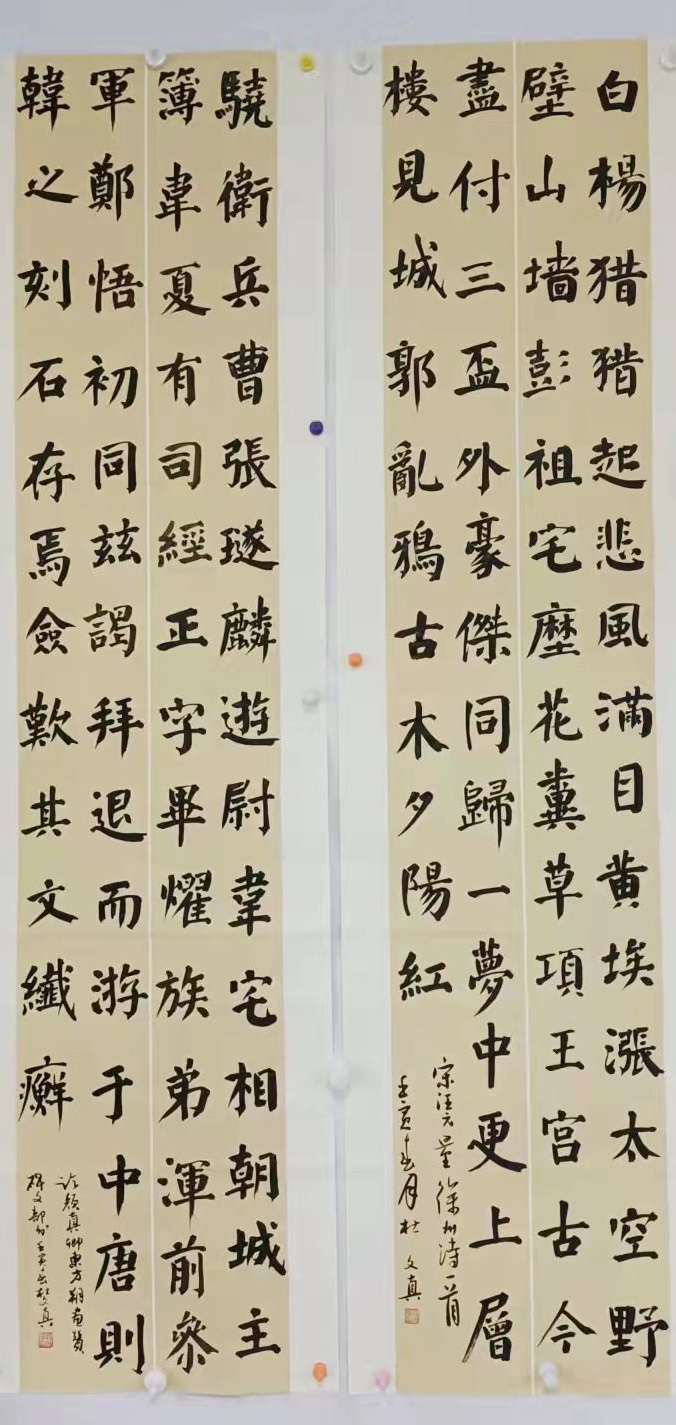 白楊猎猎起悲風滿目黄埃漲太空野
壁山墙彭祖宅塺花糞草項王宫古今
盡付三盃外豪傑同歸一夢中更上層
樓見城郭亂鴉古木夕陽紅
宋汪元量徐州诗一首
壬寅春月杜文真
驍衛兵曹張璲麟遊尉韋宅相朝城主
簿韋夏有司經正字畢燿族弟渾前參
軍鄭悟初同兹謁拜退而游于中唐則
韓之刻石存焉僉歎其文纖癬
临颜真卿東方朔画赞
碑文部分壬寅春文真